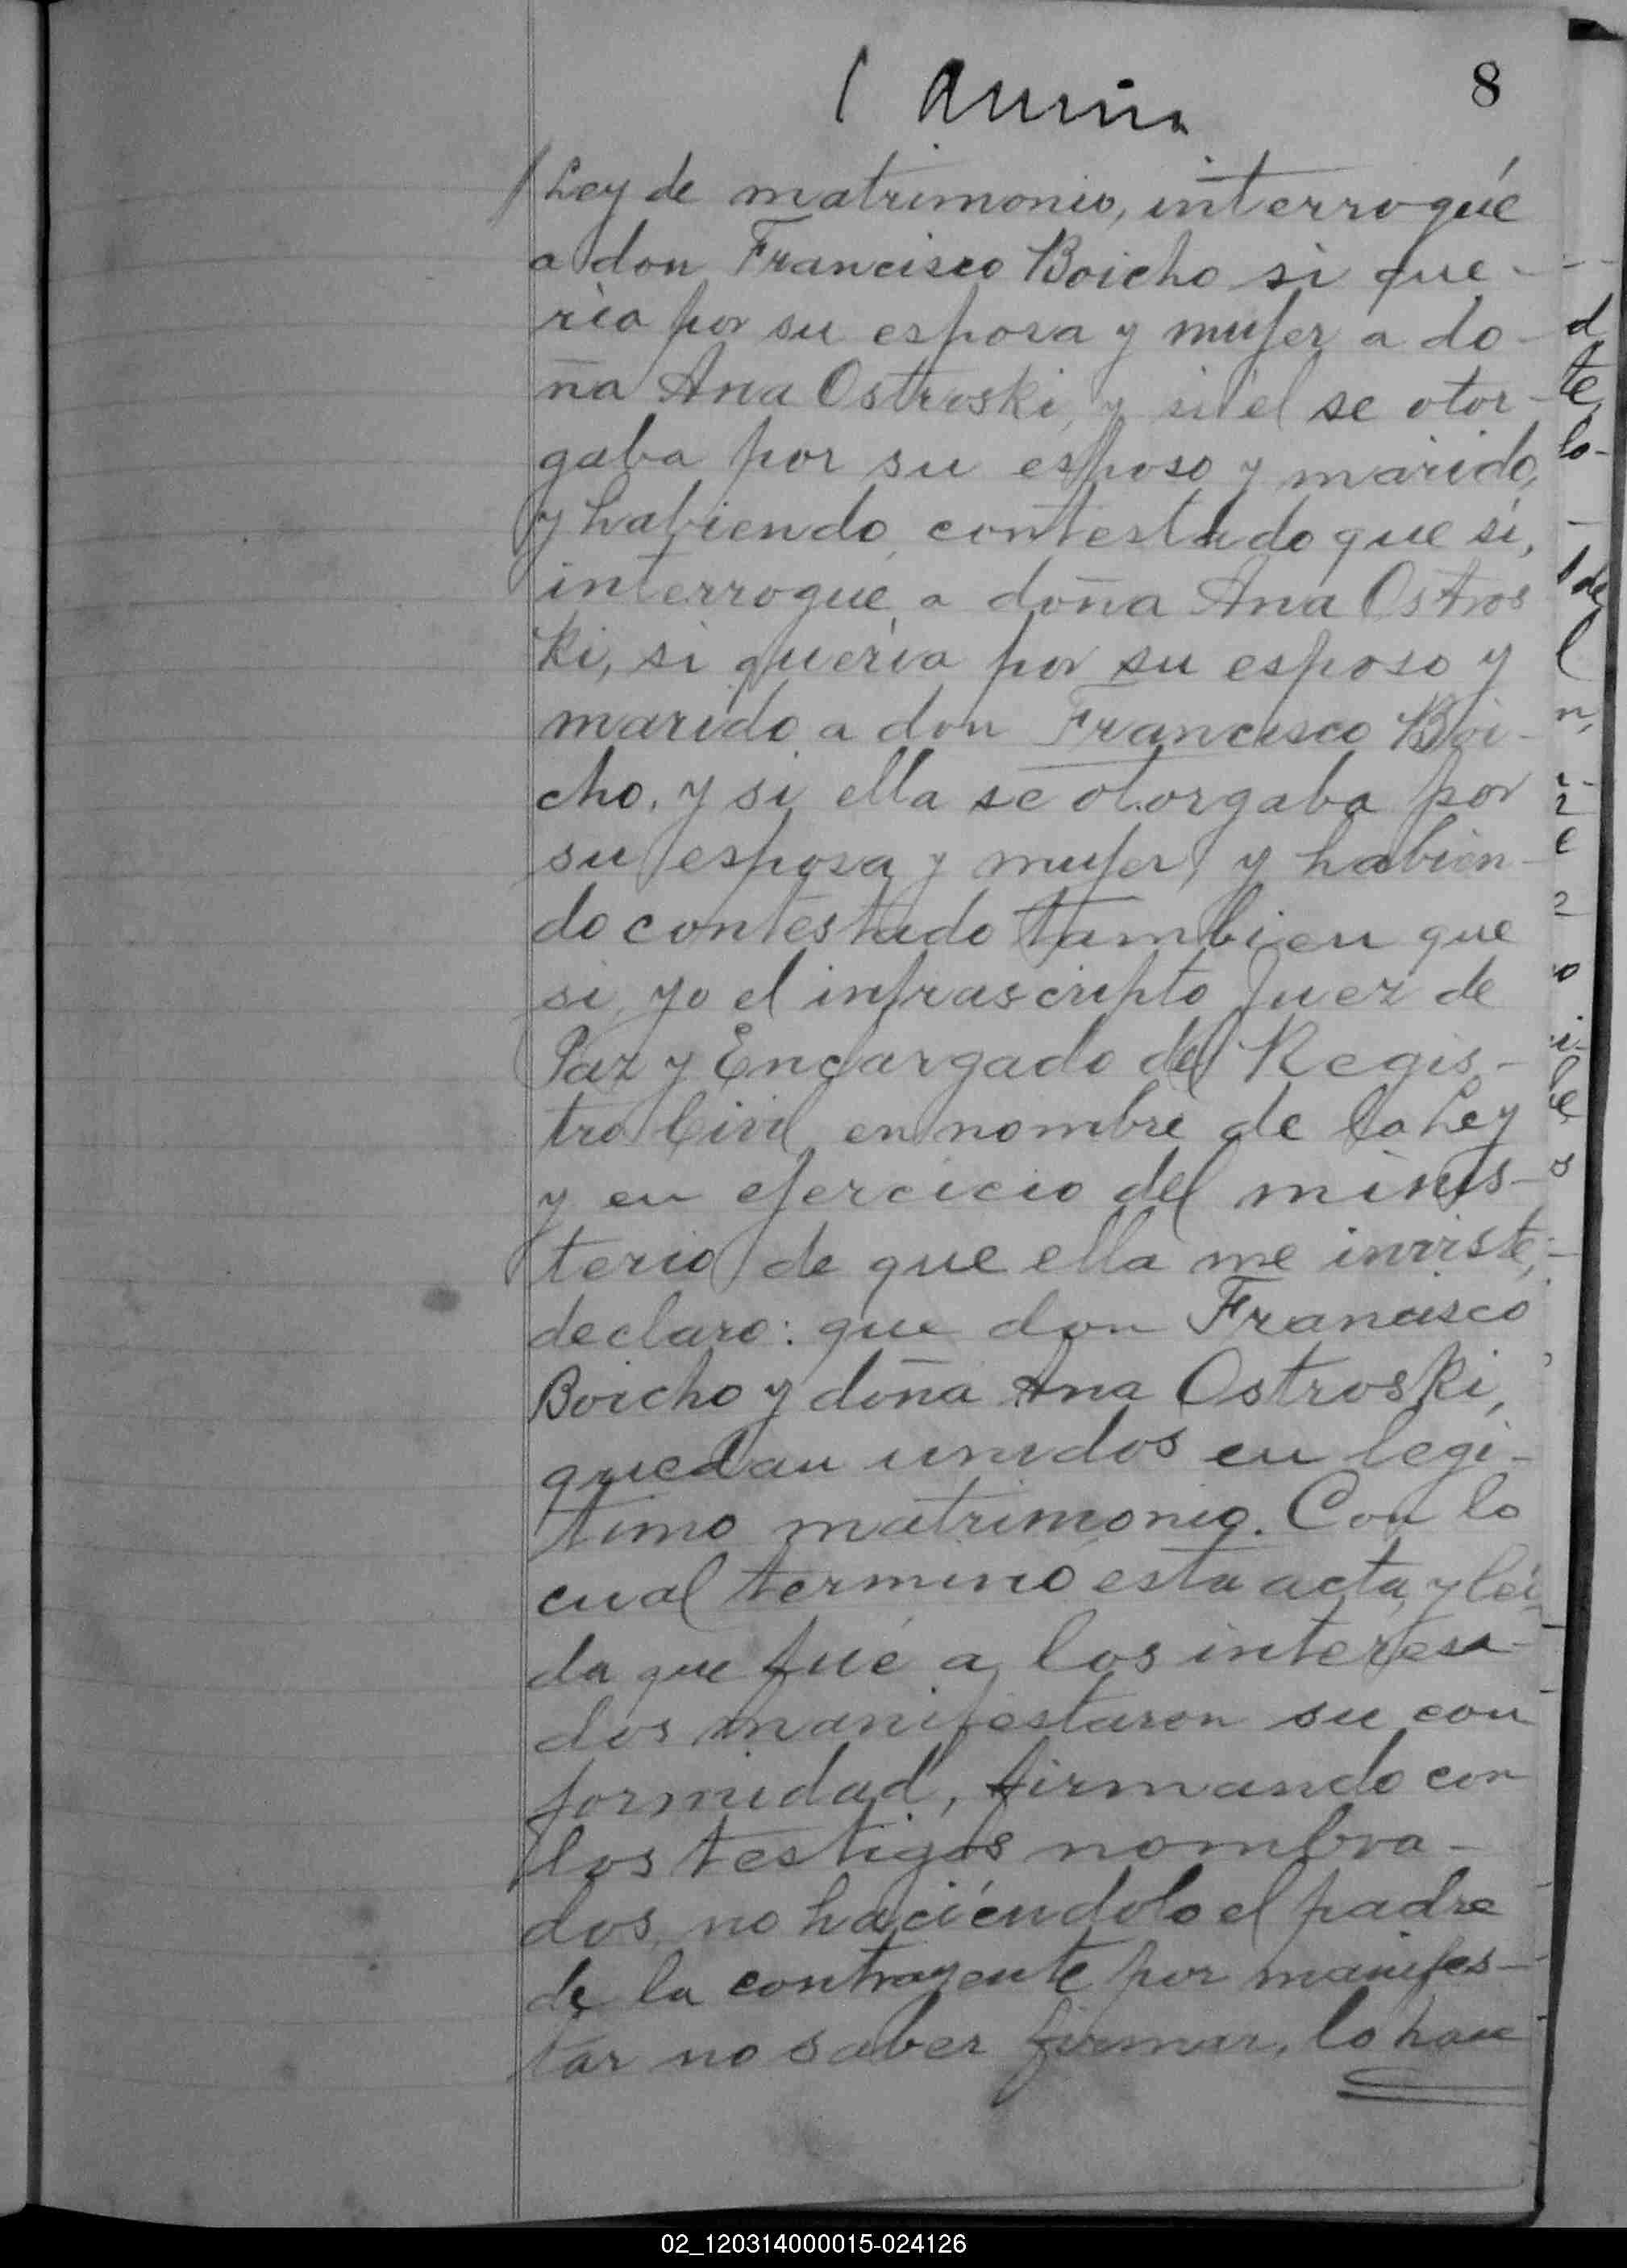 8
Ley de matrimonio, interrogué
a don Francisco Boicho si que-
ria por su esposa y mujer a do-
ña Ana Ostroski, y si él se otor-
gaba por su esposo y marido,
y habiendo contestado que si,
interrogué a doña Ana Ostros
Ki, si queria por su esposo y
marido a don Francisco Boi-
cho, y si ella se otorgaba por
su esposa y mujer, y habien-
do contestado tambien que
si, yo el infrascripto Juez de
Paz y Encargado del Regis-
tro Civil en nombre de la Ley
y en ejercicio del minis-
terio de que ella me inviste,
declaro: que don Francisco
Boicho y doña Ana Ostroski,
quedan unidos en legi-
timo matrimonio. Con lo
cual terminó esta acta, y lei-
da que fué a los interesa-
dos manifestaron su con
formidad, firmando con
los testigos nombra-
dos, no haciéndolo el padre
de la contrayente por manifes-
tar no saber firmar, lo hace
02_120314000015-024126